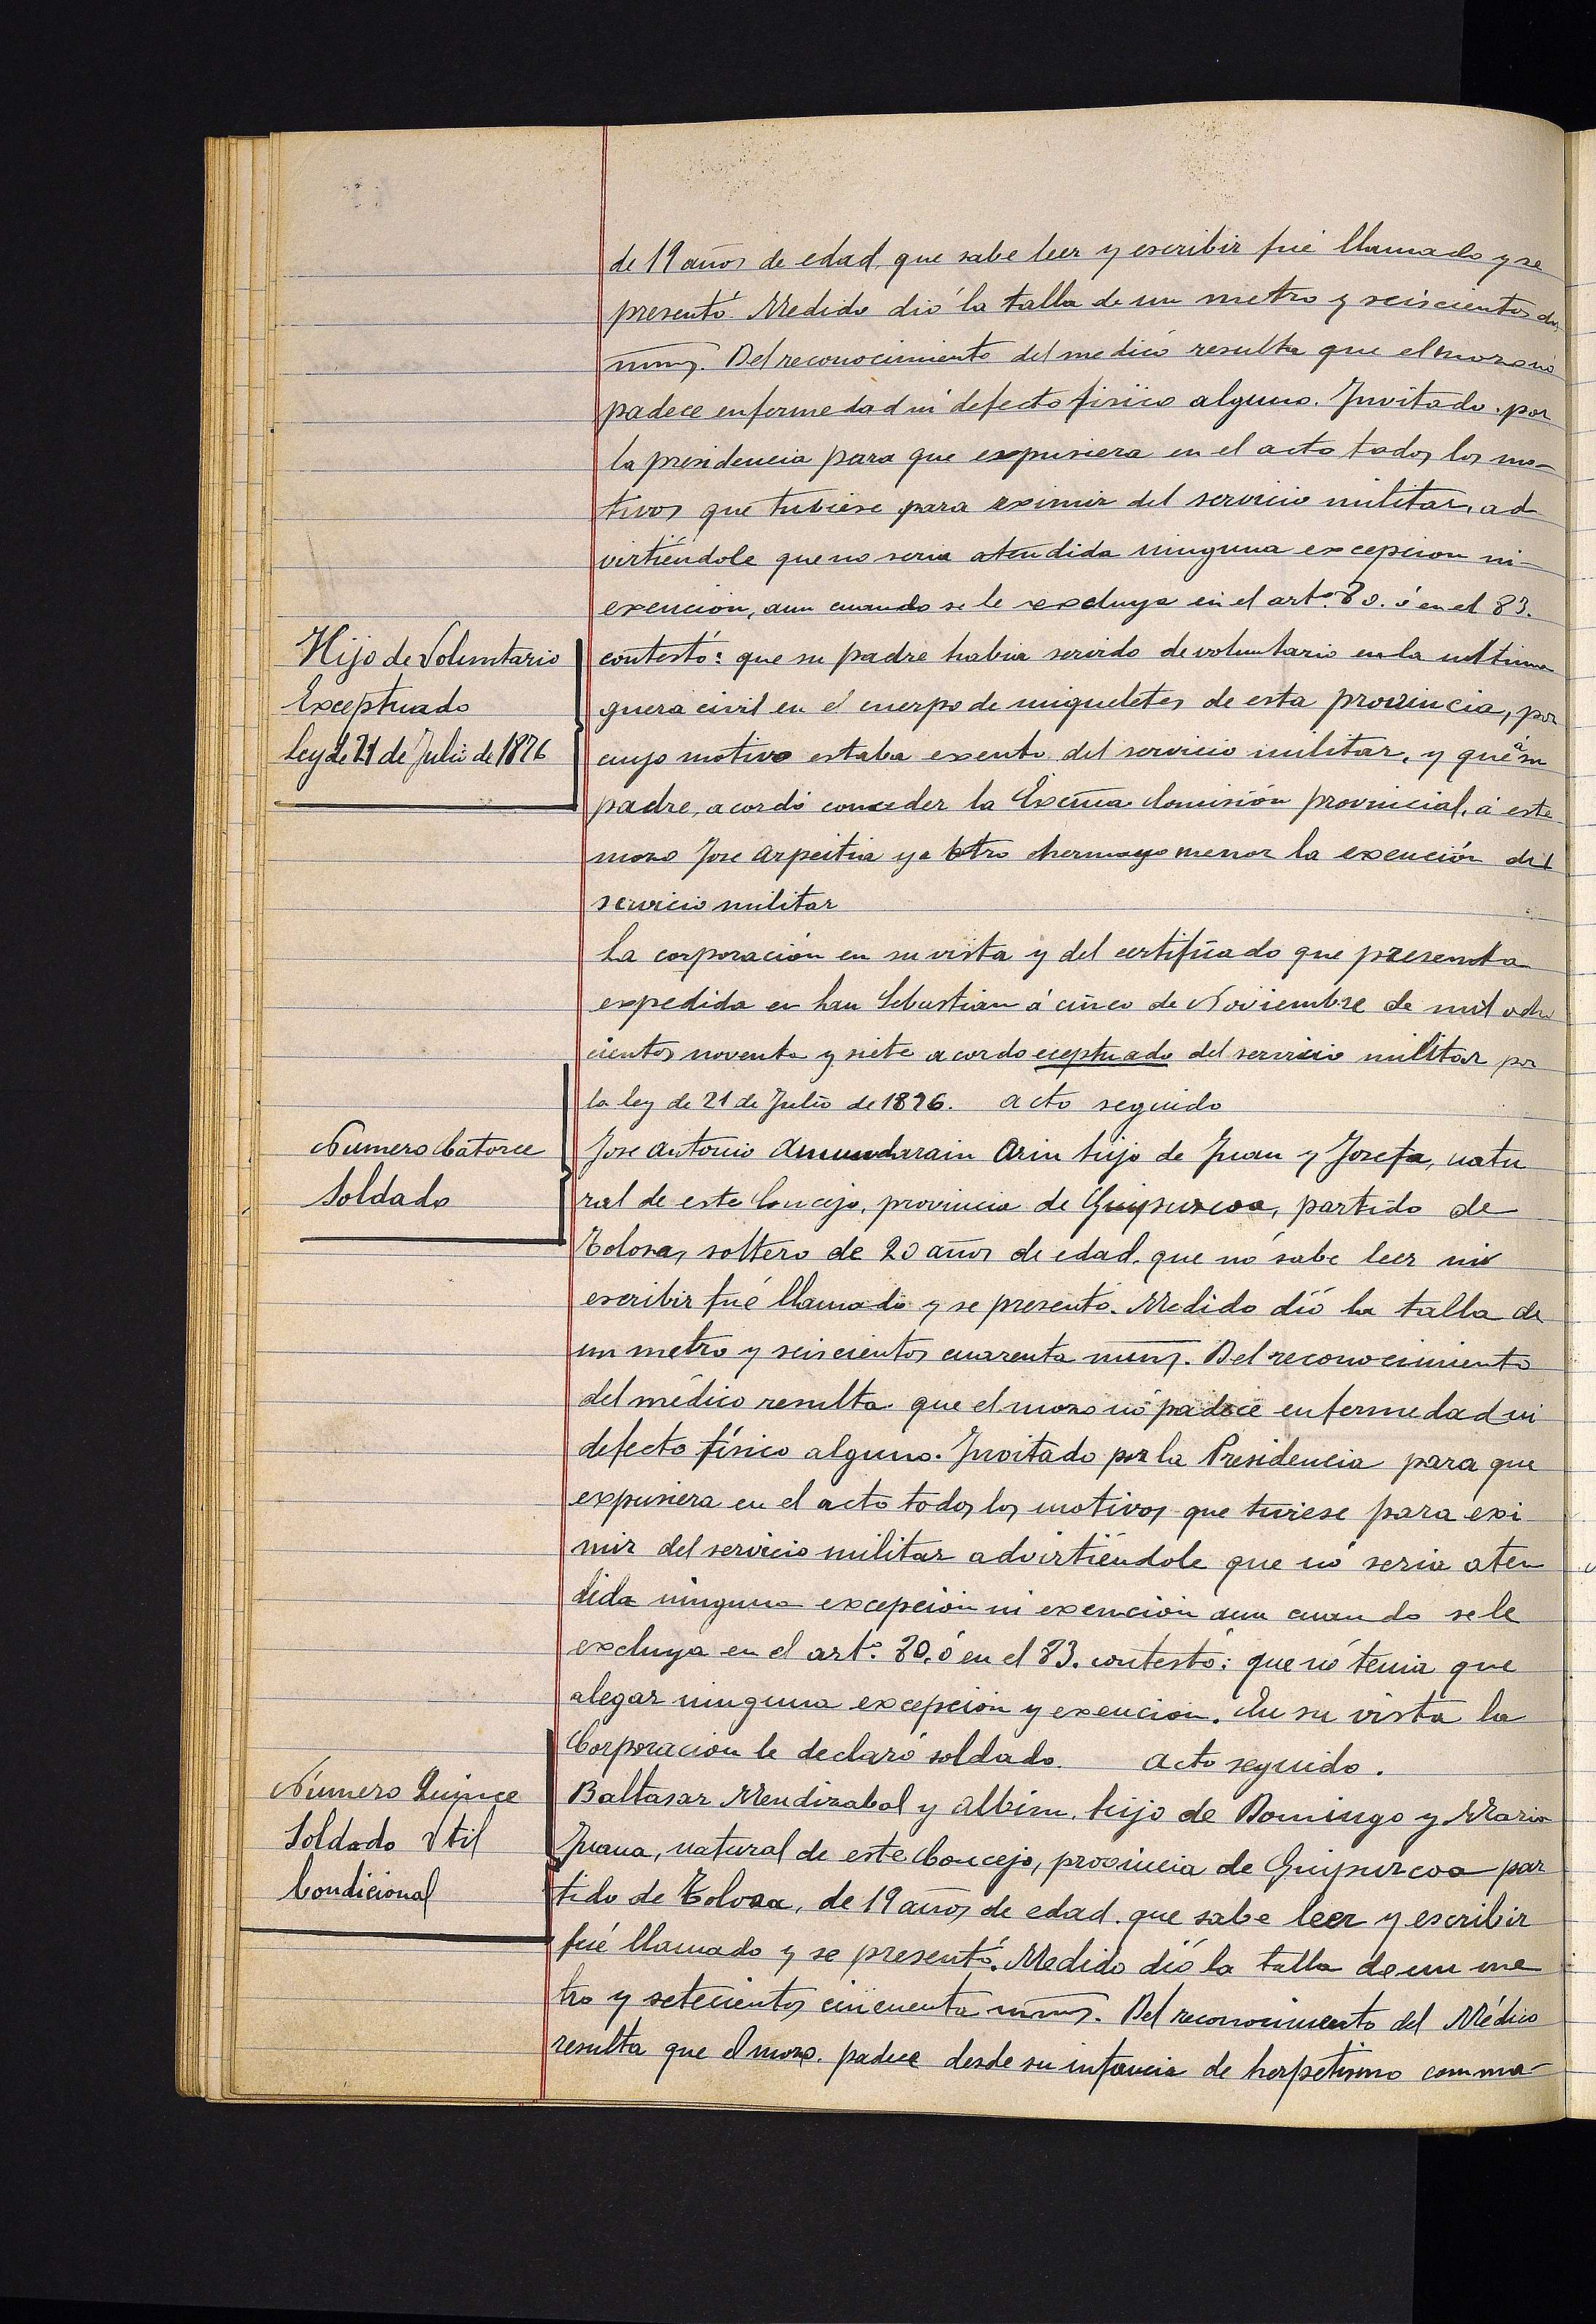 de 19 años de edad, que sabe leer y escribir fué llamado y se
presentó. Medido dió la talla de un metro y seiscientos dos
mm͞s. Del reconocimiento del medico resulta que el mozo nó
padece enfermedad ni defecto fisico alguno. Invitado por
la presidencia para que expusiera en el acto todos los mo-
tivos que tubiese para eximir del servicio militar, ad
virtiéndole que no seria atendida ninguna excepcion ni
exención, aun cuando se le excluya en el artº. 80. ó en el 83.
Hijo de Voluntario
Exceptuado
Ley de 21 de Julio de 1876
contestó: que su padre habia servido de voluntario en la ultima
guera civil en el cuerpo de migueletes de esta provincia, por
cuyo motivo estaba exento del servicio militar, y que á su
padre, acordó conceder la Excma. Comisión provincial, á este
mozo Jose Azpeitia y a otro hermano menor la exención del
servicio militar
La corporación en su vista y del certificado que presenta
expedida en San Sebastian á cinco de Noviembre de mil ocho
cientos noventa y siete acordo eceptuado del servicio militar por
la ley de 21 de Julio de 1876. acto seguido
Numero Catorce
Soldado
Jose Antonio Amundarain Arin hijo de Juan y Josefa, natu
ral de este Concejo, provincia de Guipuzcoa, partido de
Tolosa, soltero de 20 años de edad, que nó sabe leer ni
escribir fué llamado y se presentó. Medido dió la talla de
un metro y seiscientos cuarenta mm͞s. Del reconocimiento
del médico resulta que el mozo nó padece enfermedad ni
defecto físico alguno. Invitado por la Presidencia para que
expusiera en el acto todos los motivos que tuviese para exi
mir del servicio militar advirtiéndole que nó seria aten
dida ninguna excepción ni exención aun cuando se le
excluya en el artº. 80. ó en el 83. contestó: que nó tenia que
alegar ninguna excepción y exención. En su vista la
Corporación le declaró soldado. acto seguido.
Número Quince
Soldado Util
Condicional
Baltasar Mendizabal y Albisu, hijo de Domingo y Maria
Juana, natural de este Concejo, provincia de Guipuzcoa par
tido de Tolosa, de 19 años de edad, que sabe leer y escribir
fué llamado y se presentó. Medido dió la talla de un me
tro y setecientos cincuenta mm͞s. Del reconocimiento del Médico
resulta que el mozo padece desde su infancia de herpetismo com ma-